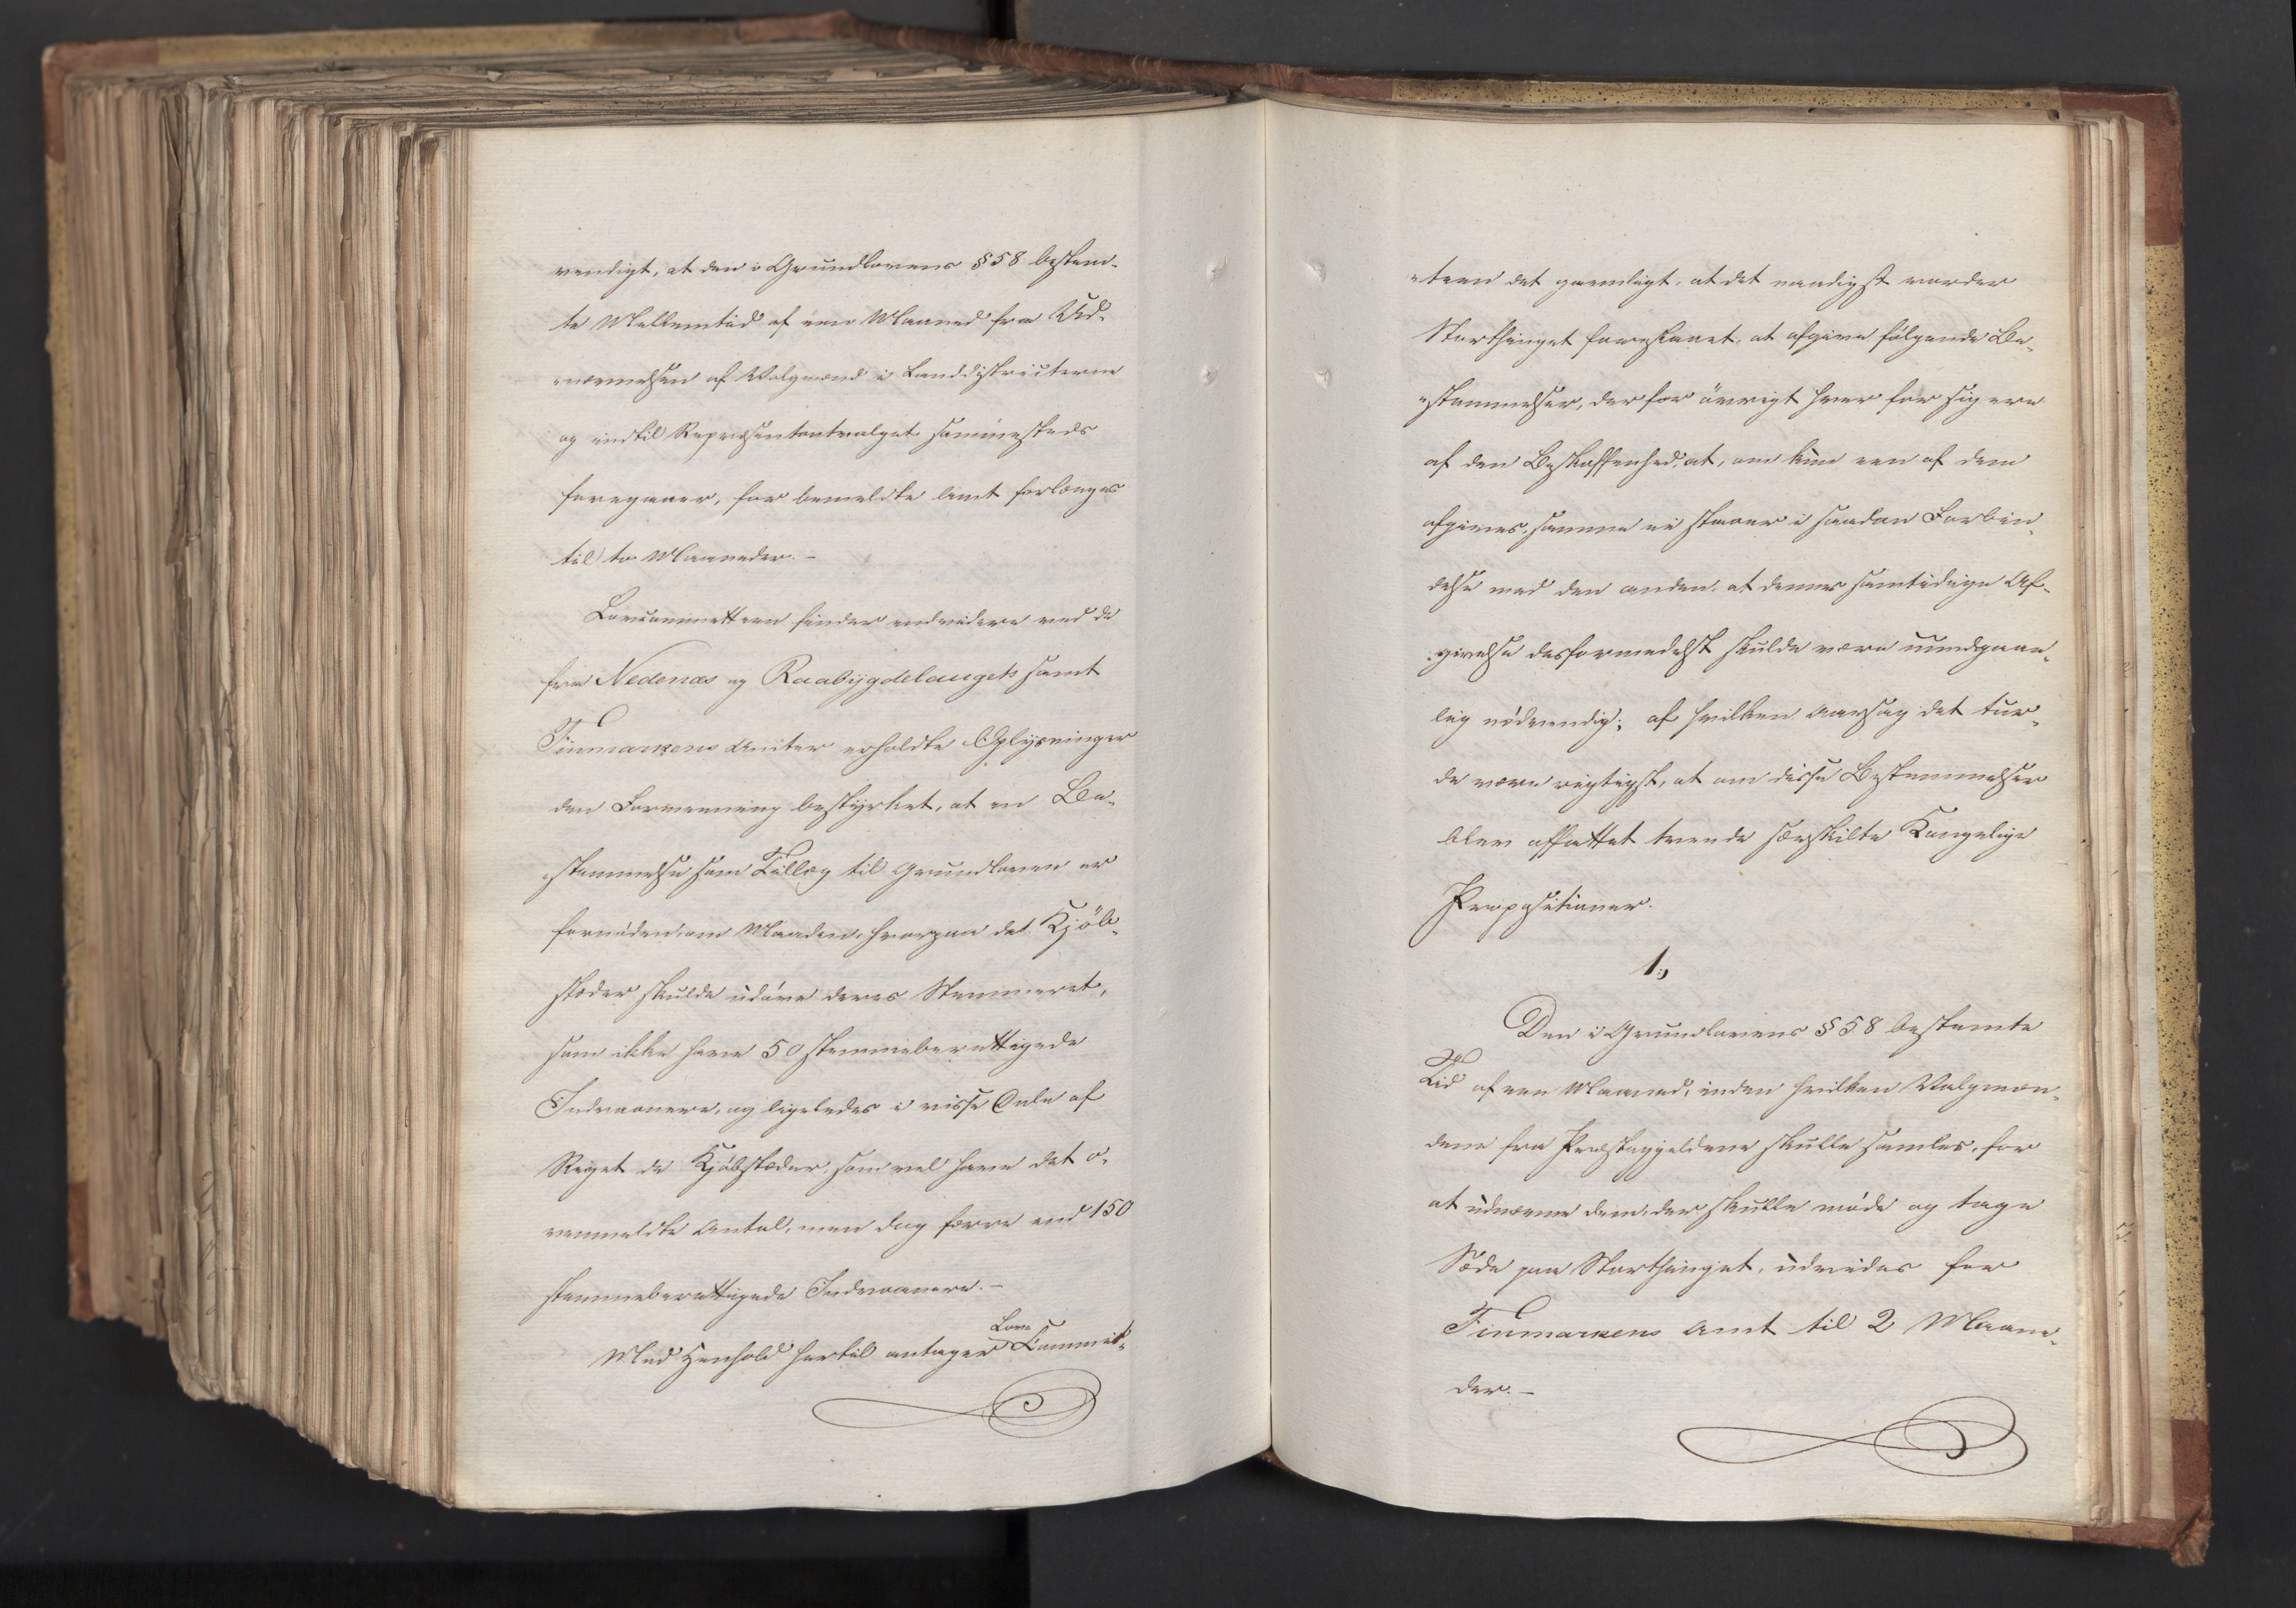 vendigt, at den i Grundlovens § 58 bestem-
te Mellemtid af een Maaned fra Ud-
nævnelsen af Valgmænd i Landdistricterne
og indtil Repræsentantvalget sammesteds
foregaaer, for bemeldte Amt forlænges
til to Maaneder. -
Lovcommitteen finder endvidere ved de
fra Nedenæs og Raabÿgdelaugets samt
Finmarkens Amter erholdte Oplysninger
den Formening bestyrket, at en Be-
stemmelse som Tillæg til Grundloven er
fornöden om Maaden, hvorpaa de Kjöb-
stæder skulde udöve deres Stemmeret,
som ikke have 50 stemmeberettigede
Indvaanere, og ligeledes i visse Dele af
Riget de Kjöbstæder, som vel have det o-
venmeldte Antal, men dog færre end 150
stemmeberettigede Indvaanere. -
Med Henhold hertil antager Lov-Commit-
teen det gavnligt, at det naadigst vorder
Storthinget foreslaaet, at afgive fölgende Be-
stemmelser, der for övrigt hver for sig ere
af den Beskaffenhed, at, om kun een af dem
afgives, samme ei staaer i saadan Forbin-
delse med den anden, at dennes samtidige Af-
givelse desformedelst skulde være uundgaae-
lig nödvendig; af hvilken Aarsag det tur-
de være rigtigst, at om disse Bestemmelser
blev affattet tvende særskilte Kongelige
Propositioner.
1,
Den i Grundlovens § 58 bestemte
Tid af een Maaned, inden hvilken Valgmæn-
dene fra Præstegjeldene skulle samles, for
at udnævne dem, der skulle möde og tage
Sæde paa Storthinget, udvides for
Finmarkens Amt til 2 Maane-
der. -